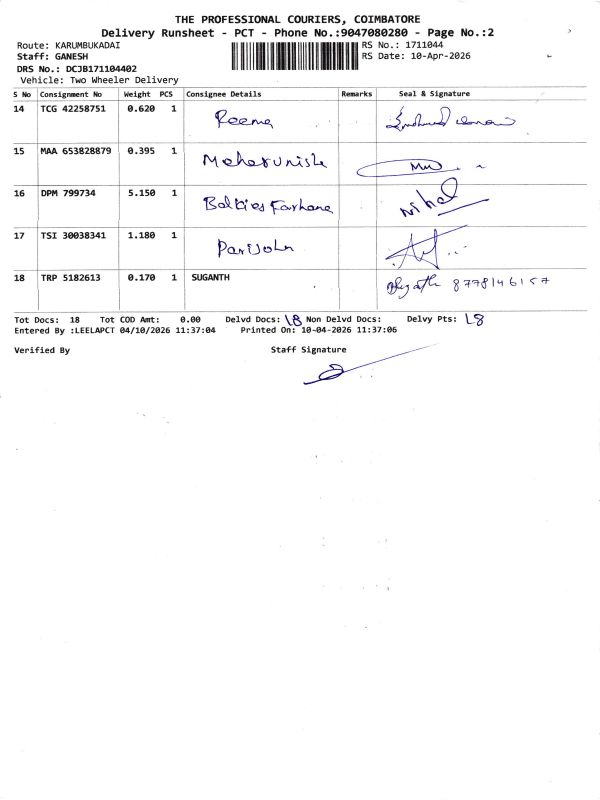 THE PROFESSIONAL COURIERS, COIMBATORE
Delivery Runsheet - PCT - Phone No.:9047080280 - Page No.:2
Route: KARUMBUKADAI RS No.: 1711044
Staff: GANESH RS Date: 10-Apr-2026
DRS No.: DCJB171104402
Vehicle: Two Wheeler Delivery
S No Consignment No Weight PCS Consignee Details Remarks Seal & Signature
14 TCG 42258751 0.620 1 Reema
15 MAA 653828879 0.395 1 Meharunisha
16 DPM 799734 5.150 1 Balkies Farhana Nihal
17 TSI 30038341 1.180 1 Parijohn
18 TRP 5182613 0.170 1 SUGANTH 8778146157
Tot Docs: 18 Tot COD Amt: 0.00 Delvd Docs: 18 Non Delvd Docs: Delvy Pts: 18
Entered By :LEELAPCT 04/10/2026 11:37:04 Printed On: 10-04-2026 11:37:06
Verified By Staff Signature